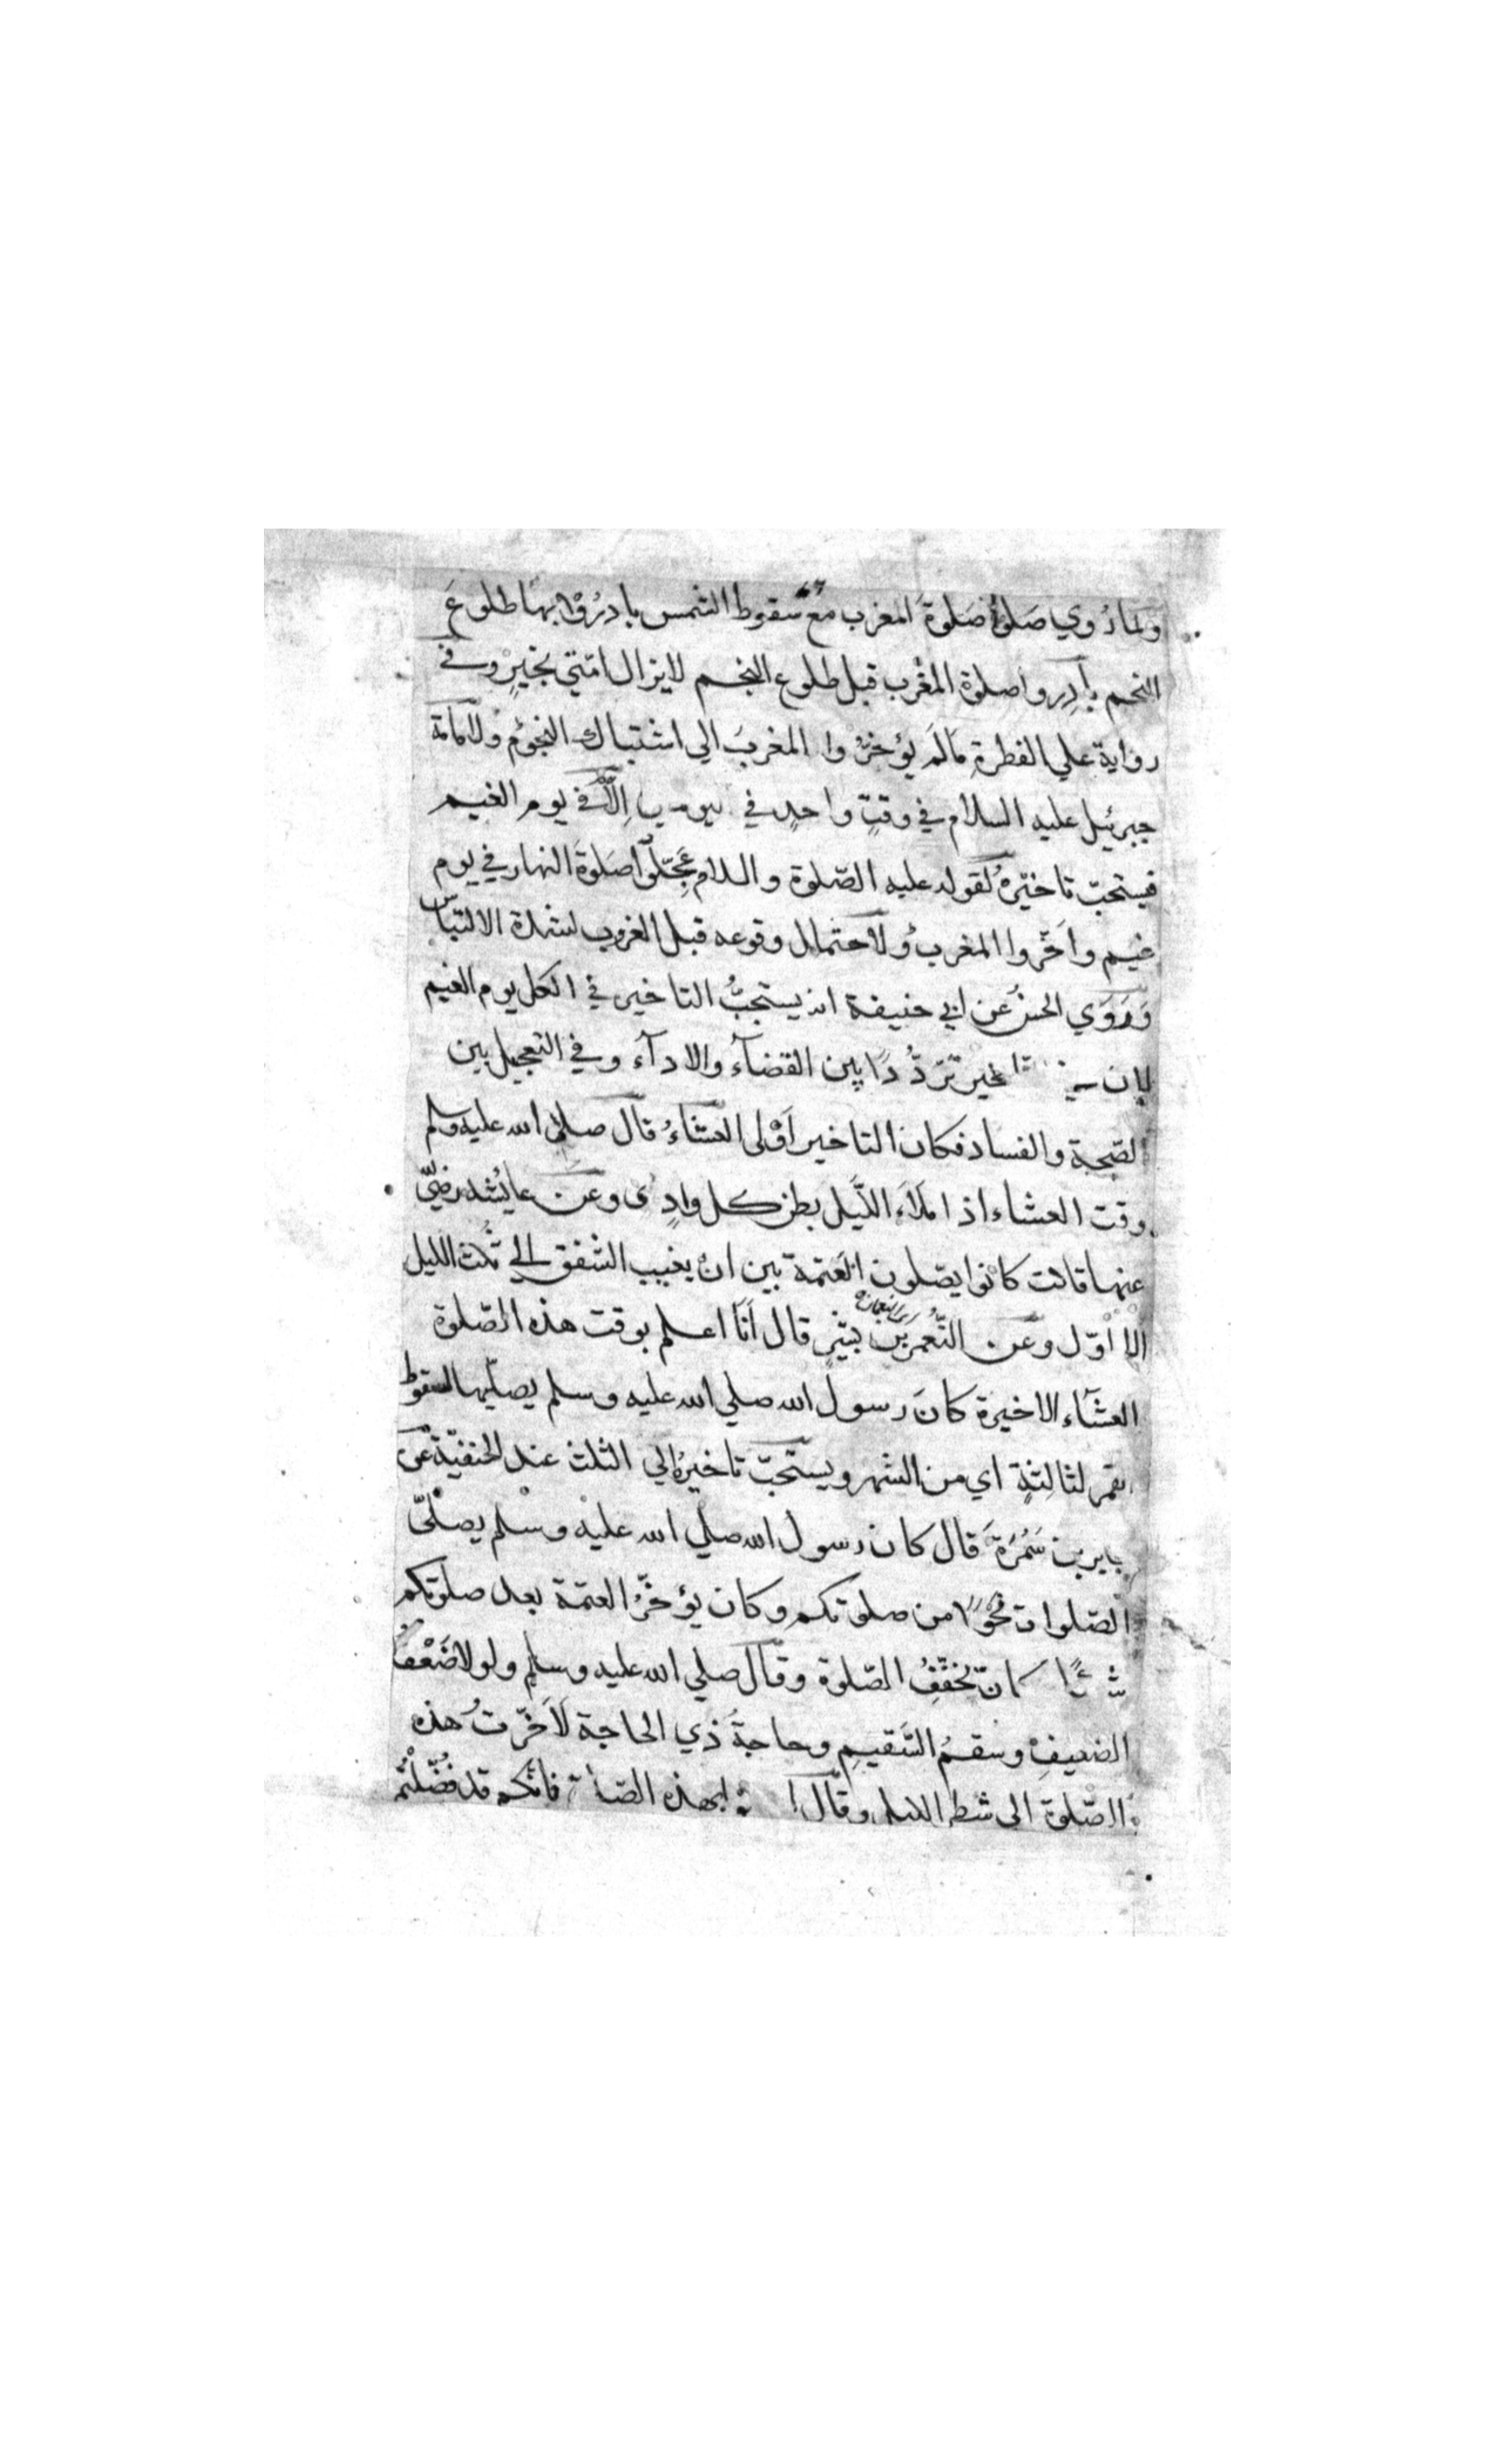 ولما رُوي صَلوا صَلوةَ المغرب مع سقوط الشمس بادرُوْا بها طلوعَ
النجم بادِروا صلوة المغرب قبل طلوع النجم لا يزال امّتي بخيرٍ وفي
رواية علي الفطرةِ مَا لَم يؤخرُوا المغربَ الي اشتباك النجوُم ولامامة
جبرئيل عليه السلام في وقتٍ واحدٍ في يومين اِلّا في يوم الغيم
فيستحبّ تاخيرهُ لقوله عليه الصّلوة والسلام عَجّلوا صَلوةَ النهار في يوم
غيم واَخّروا المغربَ ولاحتمال وقوعه قبل الغروب لشدة الالتباس
وَرَوَي الحسنُ عن ابي حنيفة انه يستحبُّ التاخير في الكل يوم الغيم
لان في التاخير تَردُّدًا بين القضآء والادآء وفي التعجيل بين
الصّحة والفساد فكان التاخير اَوْلى العشاءُ قال صلى الله عليه وسلم
وقت العشاء اذا مَلَاءَ اللّيل بطن كل وادٍ وعن عايشه رضيّ
عنها قالت كانوا يصّلون العَتمة بين ان يغيب الشفق الي ثُلث الليل
الاوّل وعن النّعمن بن بشيرٍ قال اَنَا اعلم بوقت هذه الصّلوة
العشآء الاخيرة كانَ رسول الله صلي الله عليه وسلم يصلّيها لسقوط
القمر لثالِثةٍ اي من الشهر ويستحبّ تاخيرهُ الي الثلث عند الحنفيّة عن
جابر بن سَمُرَةَ قال كان رسول الله صلي الله عليه وسلم يصلّيّ
الصّلوات نحوًا من صلوتكم وكان يؤخّرُ العتمة بعد صلوتكم
شيئًا وكان يخفّفُ الصّلوة وقال صلي الله عليه وسلم ولولا ضَعْفُ
الضعيفِ وسقمُ السَّقيمِ وحاجةُ ذي الحاجة لَاَخّرتُ هذه
الصّلوة الى شطر الليل وقال بهذه الصلوة فانّكم قد فُضّلْتُم